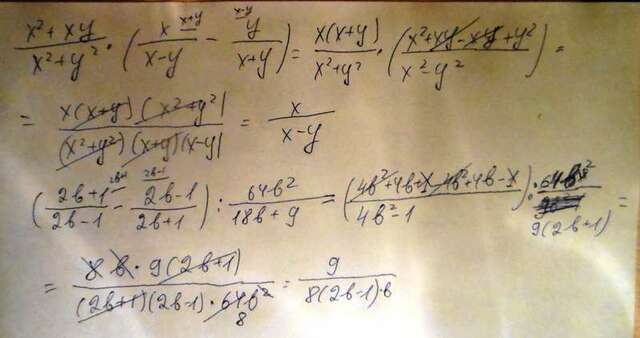 x²+xy / x²+y² · ( x / x-y ^x+y - y / x+y ^x-y ) = x(x+y) / x²+y² · ( x²+xy-xy+y² / x²-y² ) =
= x(x+y)(x²+y²) / (x²+y²)(x+y)(x-y) = x / x-y
( 2b+1 / 2b-1 ^2b+1 - 2b-1 / 2b+1 ^2b-1 ) : 64b² / 18b+9 = ( 4b²+4b+1-4b²+4b-1 / 4b²-1 ) : 64b² / 9(2b+1) =
= 8b·9(2b+1) / (2b+1)(2b-1)·64b² 8 = 9 / 8(2b-1)·b